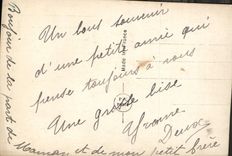 Un bons souvenir
d'une petite amie qui
pense toujours à vous
Une grosse bise
Yvonne
Bonjour de la part de
Maman et de mon petit frère